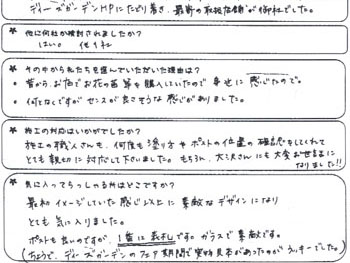 ディーズガーデンHPにたどり着き、最寄の取扱店舗が御社でした。
★ 他に何社か検討されましたか?
はい。 他1社
★ その中から私たちを選んでいただいた理由は?
・昔から、お店でお花の苗等を購入していたので 身近に感じたので。
・何となくですが センスが良さそうな 感じがありました。
★ 施工の対応はいかがでしたか?
施工の職人さんも、何度も塗り方やポストの位置の確認をしてくれて
とても親切に対応して下さいました。もちろん、大沢さんにも大変お世話に
なりました!!
★ 気に入ってらっしゃる所はどこですか?
最初イメージしていた感じ以上に素敵なデザインになり
とても気に入りました。
ポストも良いのですが、1番に表札です。ガラスで素敵です。
(ちょうど、ディーズガーデンのフェア期間で実物見本があったのがラッキーでした。)